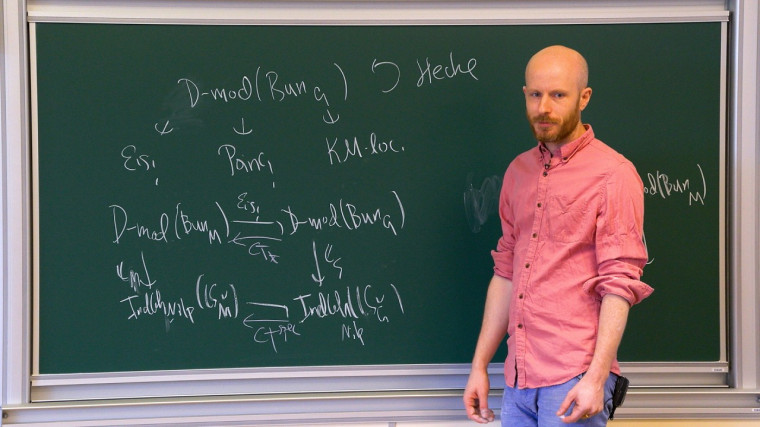 D-mod(Bun_G) ↺ Hecke
Eis_! Poinc_! KM-loc.
D-mod(Bun_M) Eis_! D-mod(Bun_G)
CT_*
𝕃_M 𝕃_G
IndCoh_Nilp(LS_M̌) IndCoh_Nilp(LS_Ǧ)
CT^spec
mod(Bun_M)